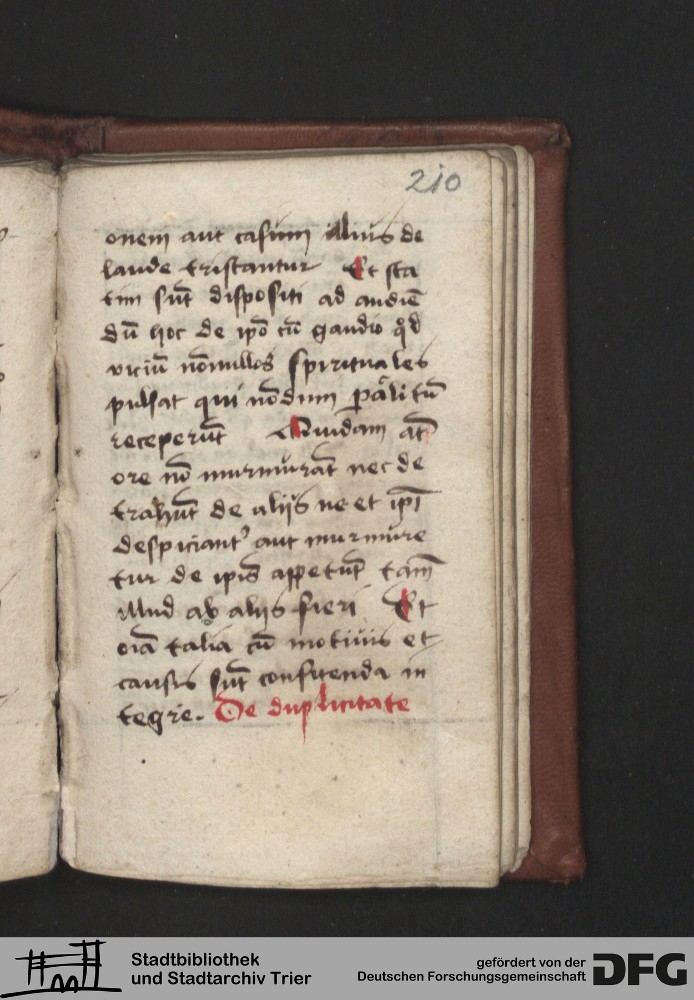 210
onem aut casum illius de
laude tristantur Et sta
tim sūt dispositi ad audiē
dū hoc de ip̄o cū gaudio qd̄
viciū nōnullos spirituales
pulsat qui nōdum
receperūt Quidam aūt
ore nō murmurāt nec de
trahūt de aliis ne et ip̄i
despiciant aut murmure
tur de ip̄is appetūt tam̄
illud ab aliis fieri Et
oīa talia cū motiuis et
causis sūt confitenda in
tegre. De duplicitate
Stadtbibliothek
und Stadtarchiv Trier
gefördert von der
Deutschen Forschungsgemeinschaft
DFG